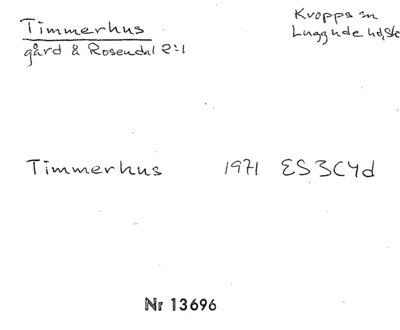 Timmerhus
gård å Rosendal 2:1
Kropps sn
Luggude hd, Sk
Timmerhus 1971 ES 3C4d
Nr 13696